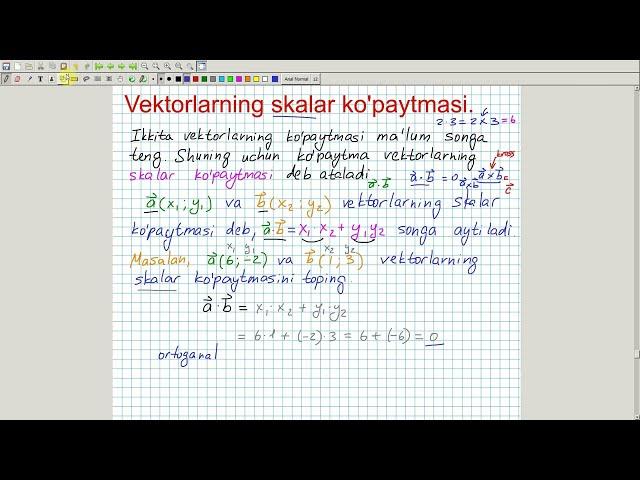 Arial Normal 12
Vektorlarning skalar ko'paytmasi.
2·3=2×3=6
Ikkita vektorlarning ko'paytmasi ma'lum songa
teng. Shuning uchun ko'paytma vektorlarning
skalar ko'paytmasi deb ataladi a⃗·b⃗ a⃗·b⃗=0 a⃗×b⃗ a⃗×b⃗= c⃗
a⃗(x₁;y₁) va b⃗(x₂;y₂) vektorlarning skalar
ko'paytmasi deb, a⃗·b⃗=x₁·x₂+y₁y₂ songa aytiladi.
x₁ y₁ x₂ y₂
Masalan, a⃗(6;-2) va b⃗(1;3) vektorlarning
skalar ko'paytmasini toping.
a⃗·b⃗ = x₁·x₂+y₁·y₂
= 6·1+(-2)·3=6+(-6)=0
ortoganal